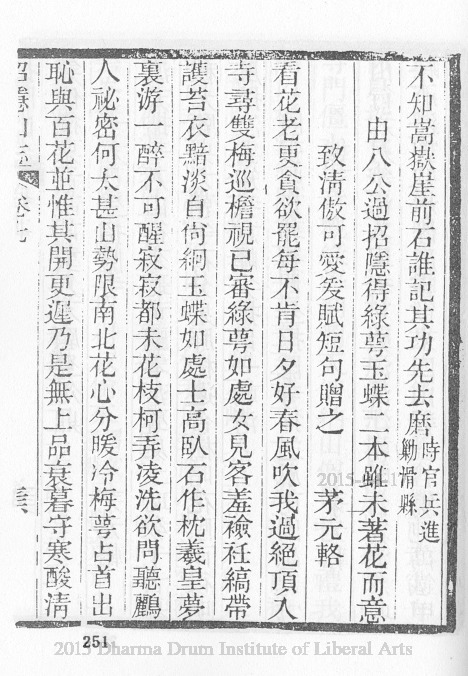 不知嵩嶽崖前石誰記其功先去磨時官兵進勦滑縣
由八公過招隱得綠萼玉蝶二本雖未著花而意
致淸傲可愛爰賦短句贈之 茅元輅
看花老更貪欲罷每不肯日夕好春風吹我過絕頂入
寺尋雙梅巡檐視已審綠萼如處女見客羞襝衽縞帶
護苔衣黯淡自尙絅玉蝶如處士高臥石作枕羲皇夢
裏游一醉不可醒寂寂都未花枝柯弄凌洗欲問聽鸝
人祕密何太甚山勢限南北花心分暖冷梅萼占首出
恥與百花並惟其開更遲乃是無上品衰暮守寒酸淸
卷七
251
2015 Dharma Drum Institute of Liberal Arts